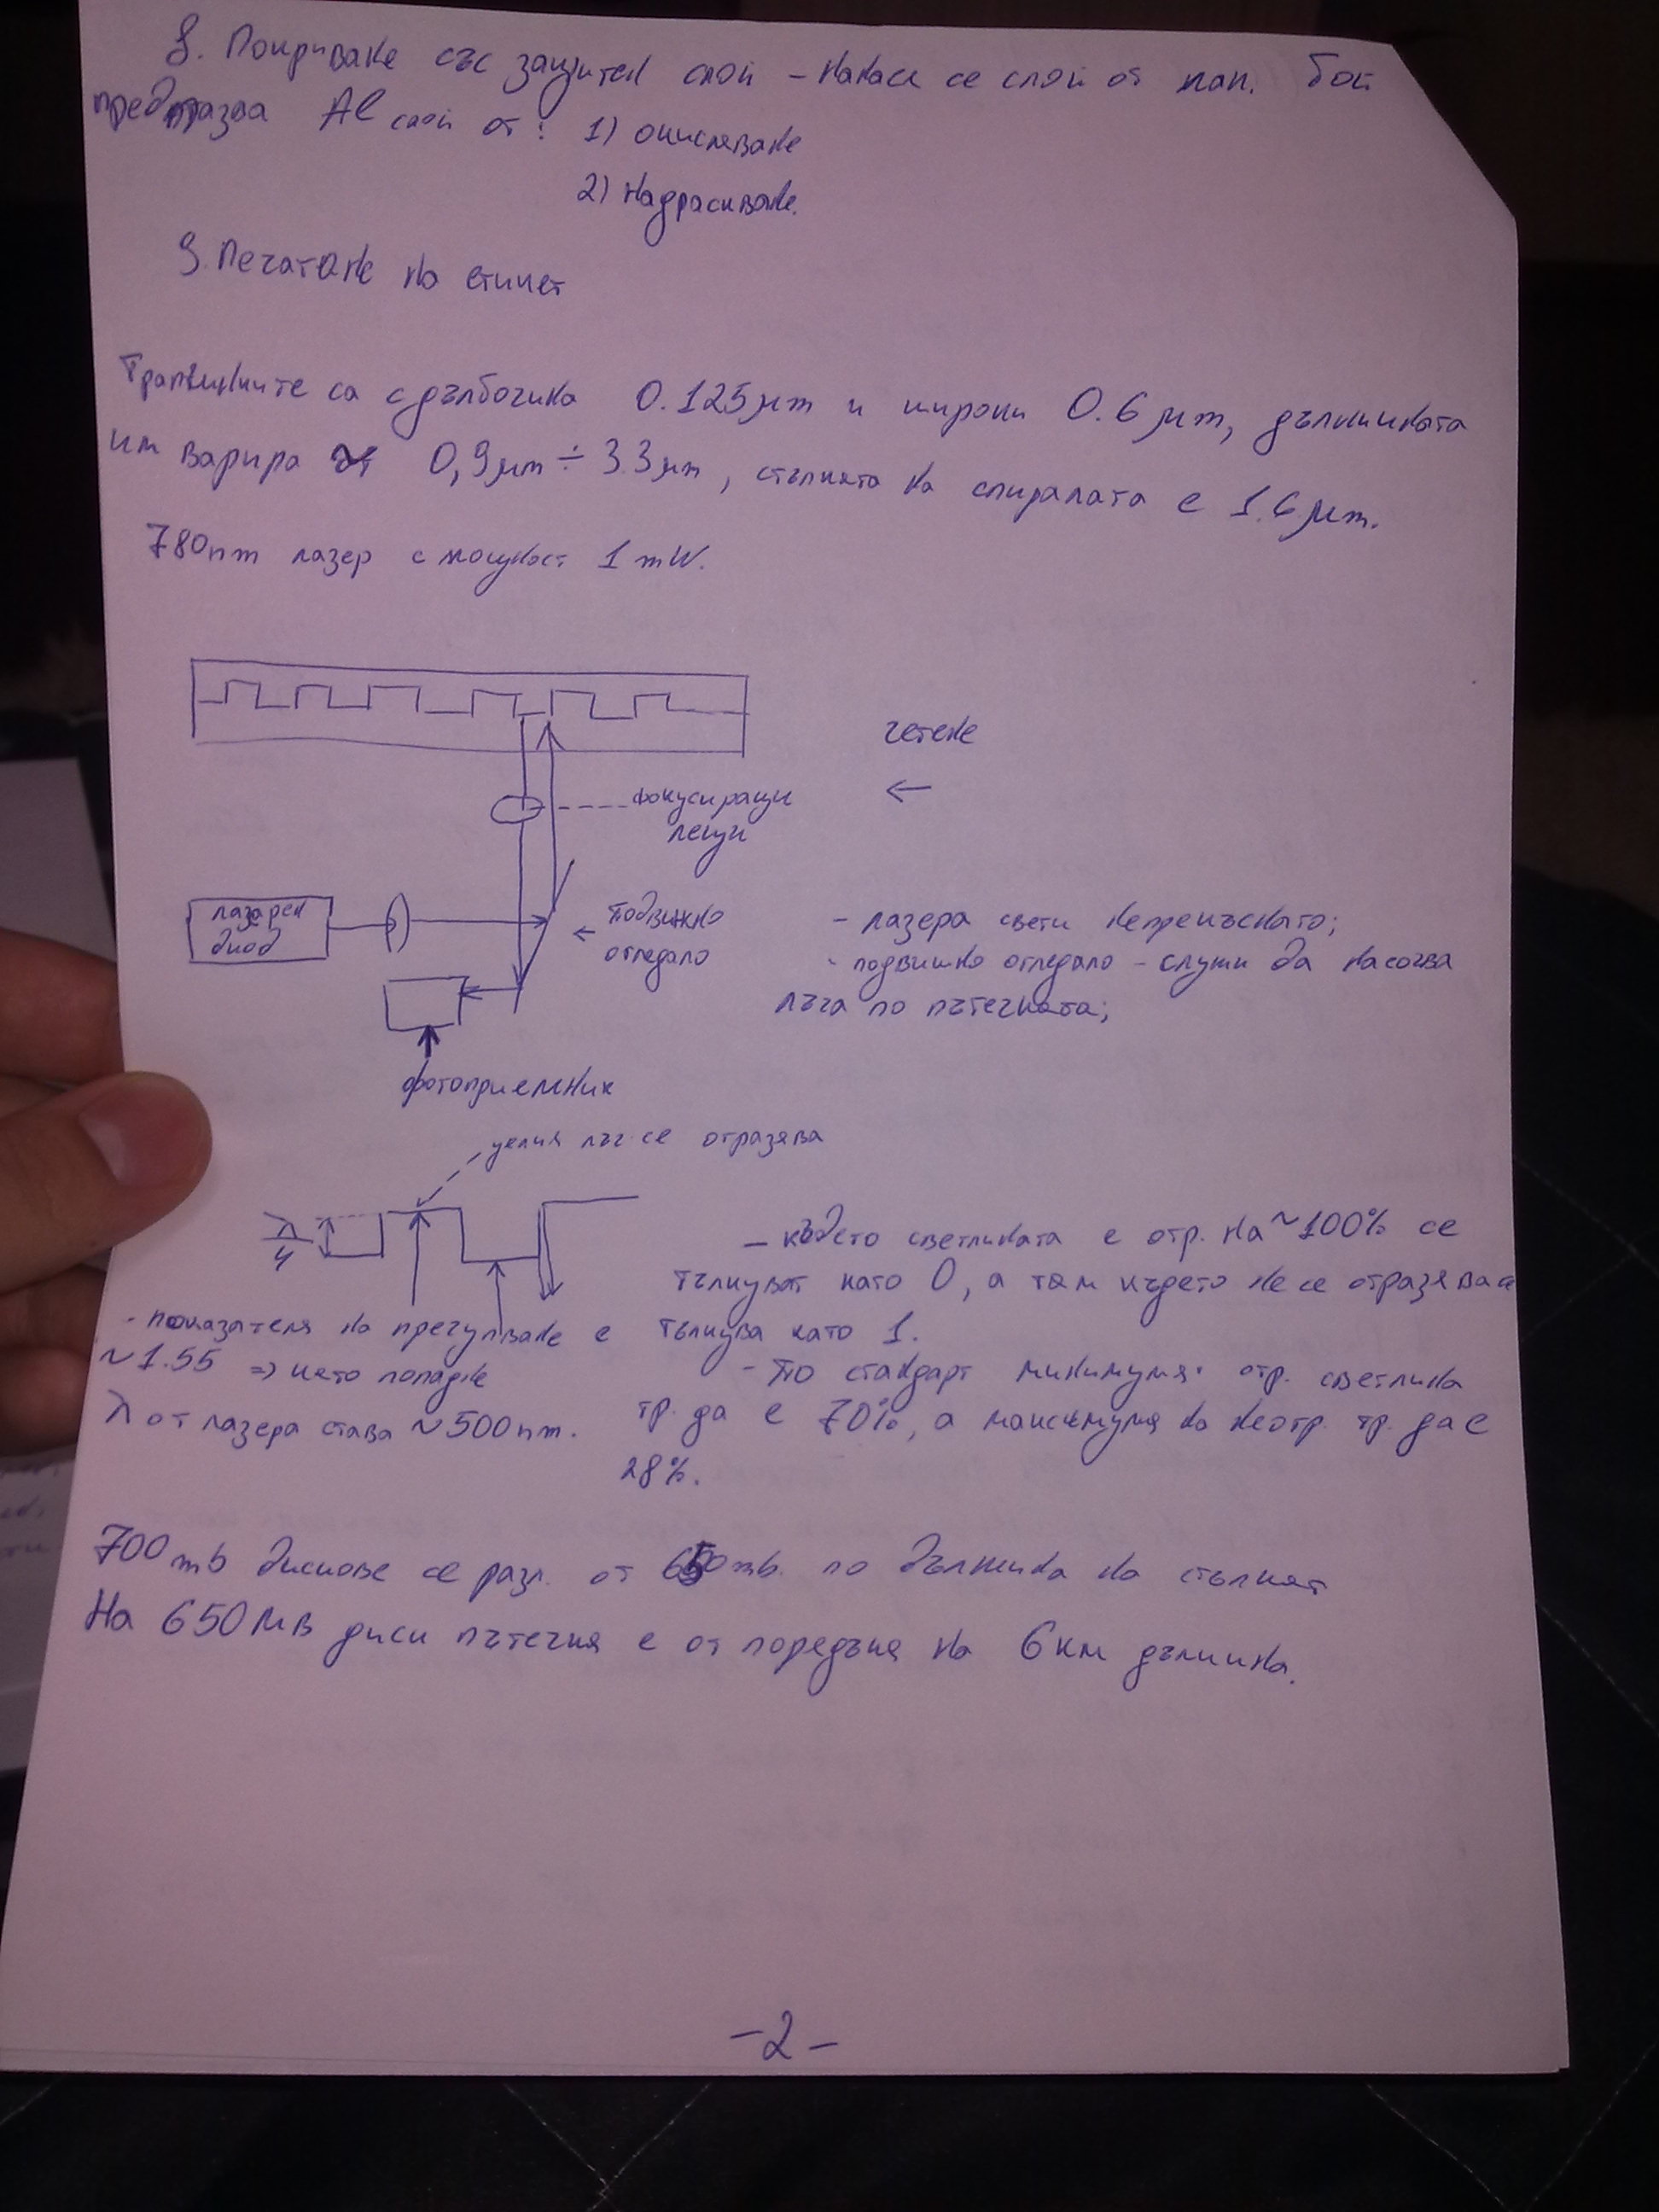 8. Покриване със защитен слой – нанася се слой от лак. Той
предпазва Al слой от: 1) окисляване
2) надраскване.
9. Печатане на етикет
Трапчинките са с дълбочина 0.125μm и широки 0.6μm, дължината
им варира от 0,9μm ÷ 3.3μm, стъпката на спиралата е 1.6μm.
780nm лазер с мощност 1mW.
четене
←
фокусиращи
лещи
лазерен
диод
← подвижно
огледало
- лазера свети непрекъснато;
- подвижно огледало – служи да насочва
лъча по пътечката;
фотоприемник
целия лъч се отразява
λ/4
– където светлината е отр. на ~100% се
тълкуват като 0, а там където не се отразява се
тълкува като 1.
- показателя на пречупване е
~1.55 => като попадне
λ от лазера става ~500nm.
- по стандарт минимумя отр. светлина
тр. да е 70%, а максимумя на неотр. тр. да е
28%.
700mb дискове се разл. от 650mb. по дължина на стъпкат
На 650MB диск пътечкя е от порядъкя на 6км дължина.
-2-